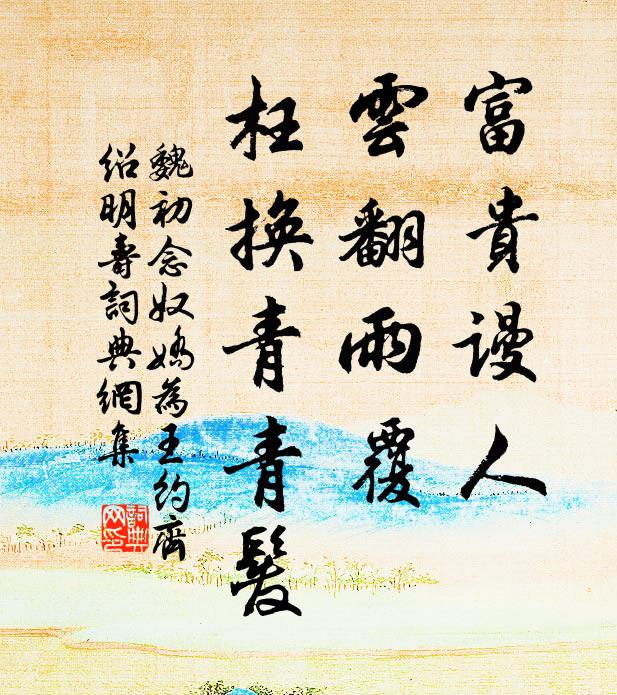 富貴謾人
雲翻雨覆
枉換青青髮
魏初念奴嬌為王約齋
紹明壽詞典網集